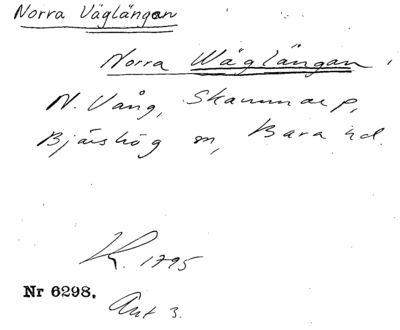 Norra Väglängan
Norra Wäglängan,
N. Vång, Skammarp,
Bjärshög sn, Bara hd.
K. 1795
Nr 6298.
Akt 3.